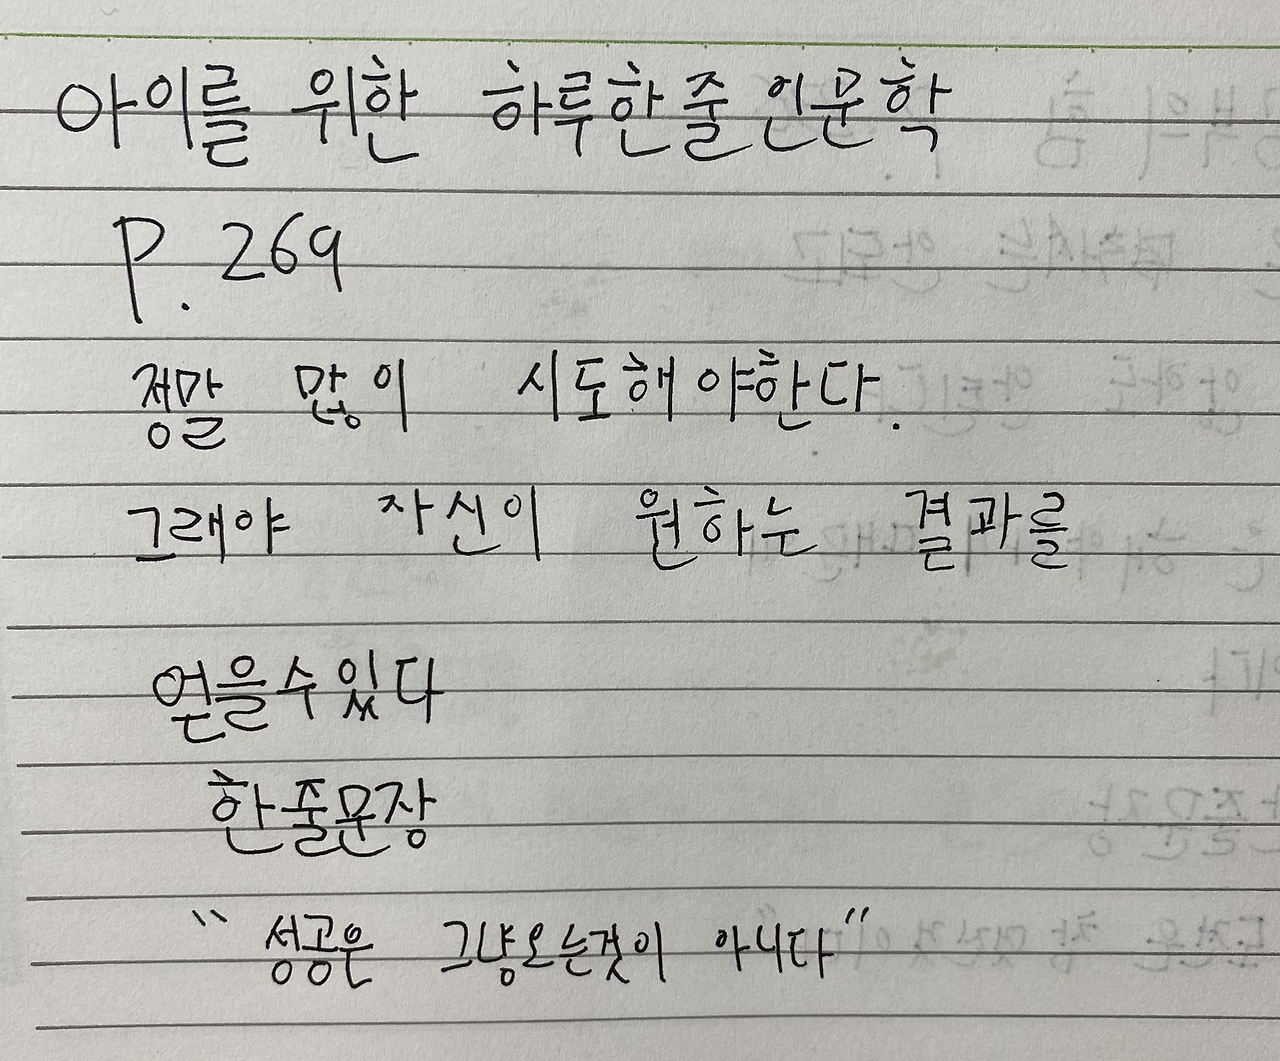 아이를 위한 하루한줄인문학
P. 269
정말 많이 시도해야한다.
그래야 자신이 원하는 결과를
얻을수있다
한줄문장
" 성공은 그냥오는것이 아니다"